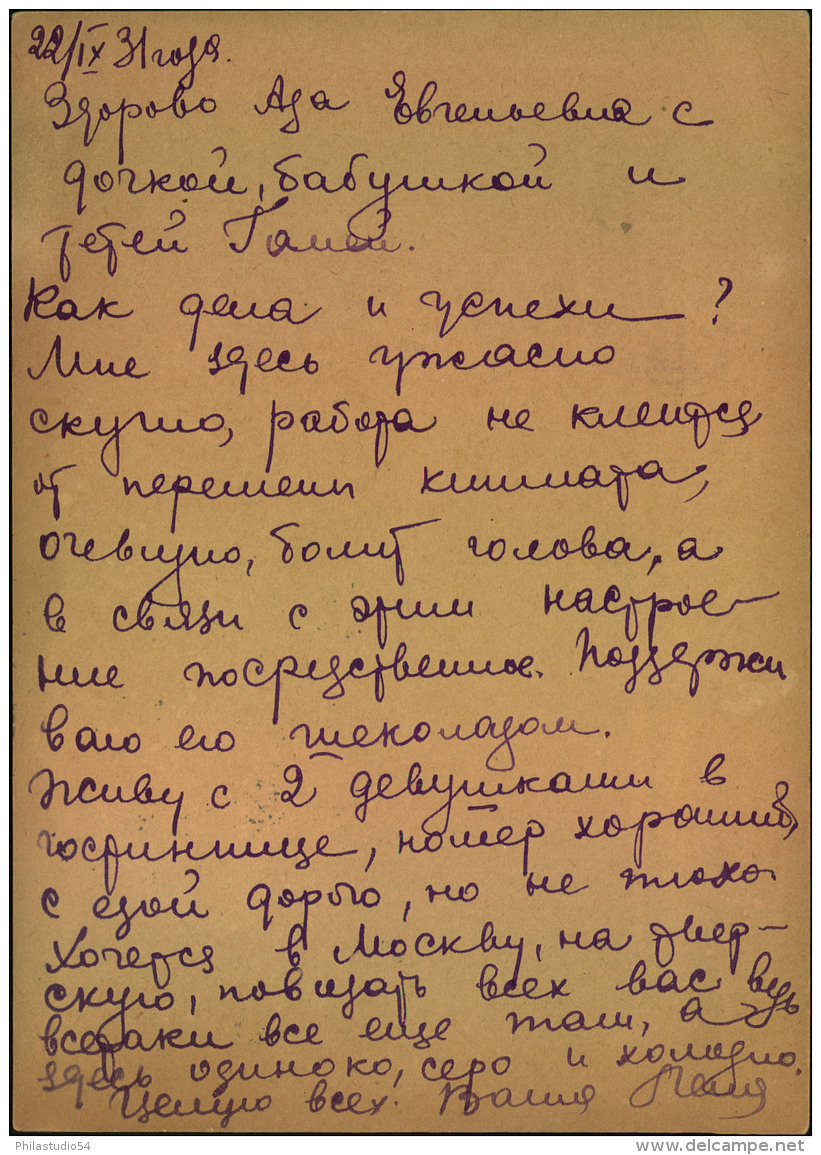 22/IX 31 года.
Здорово Ада Евгеньевна с
дочкой, бабушкой и
тетей Галей.
Как дела и успехи ?
Мне здесь ужасно
скучно, работа не клеится
от перемены климата,
очевидно, болит голова, а
в связи с этим настрое-
ние посредственное. Поддержи
ваю его шеколадом.
Живу с 2 девушками в
гостиннице, номер хороший,
с едой дорого, но не плохо.
Хочется в Москву, на твер-
скую, повидать всех вас ведь
всетаки все еще там, а
здесь одиноко, серо и холодно.
Целую всех. Ваша
Philastudio54
www.delcampe.net